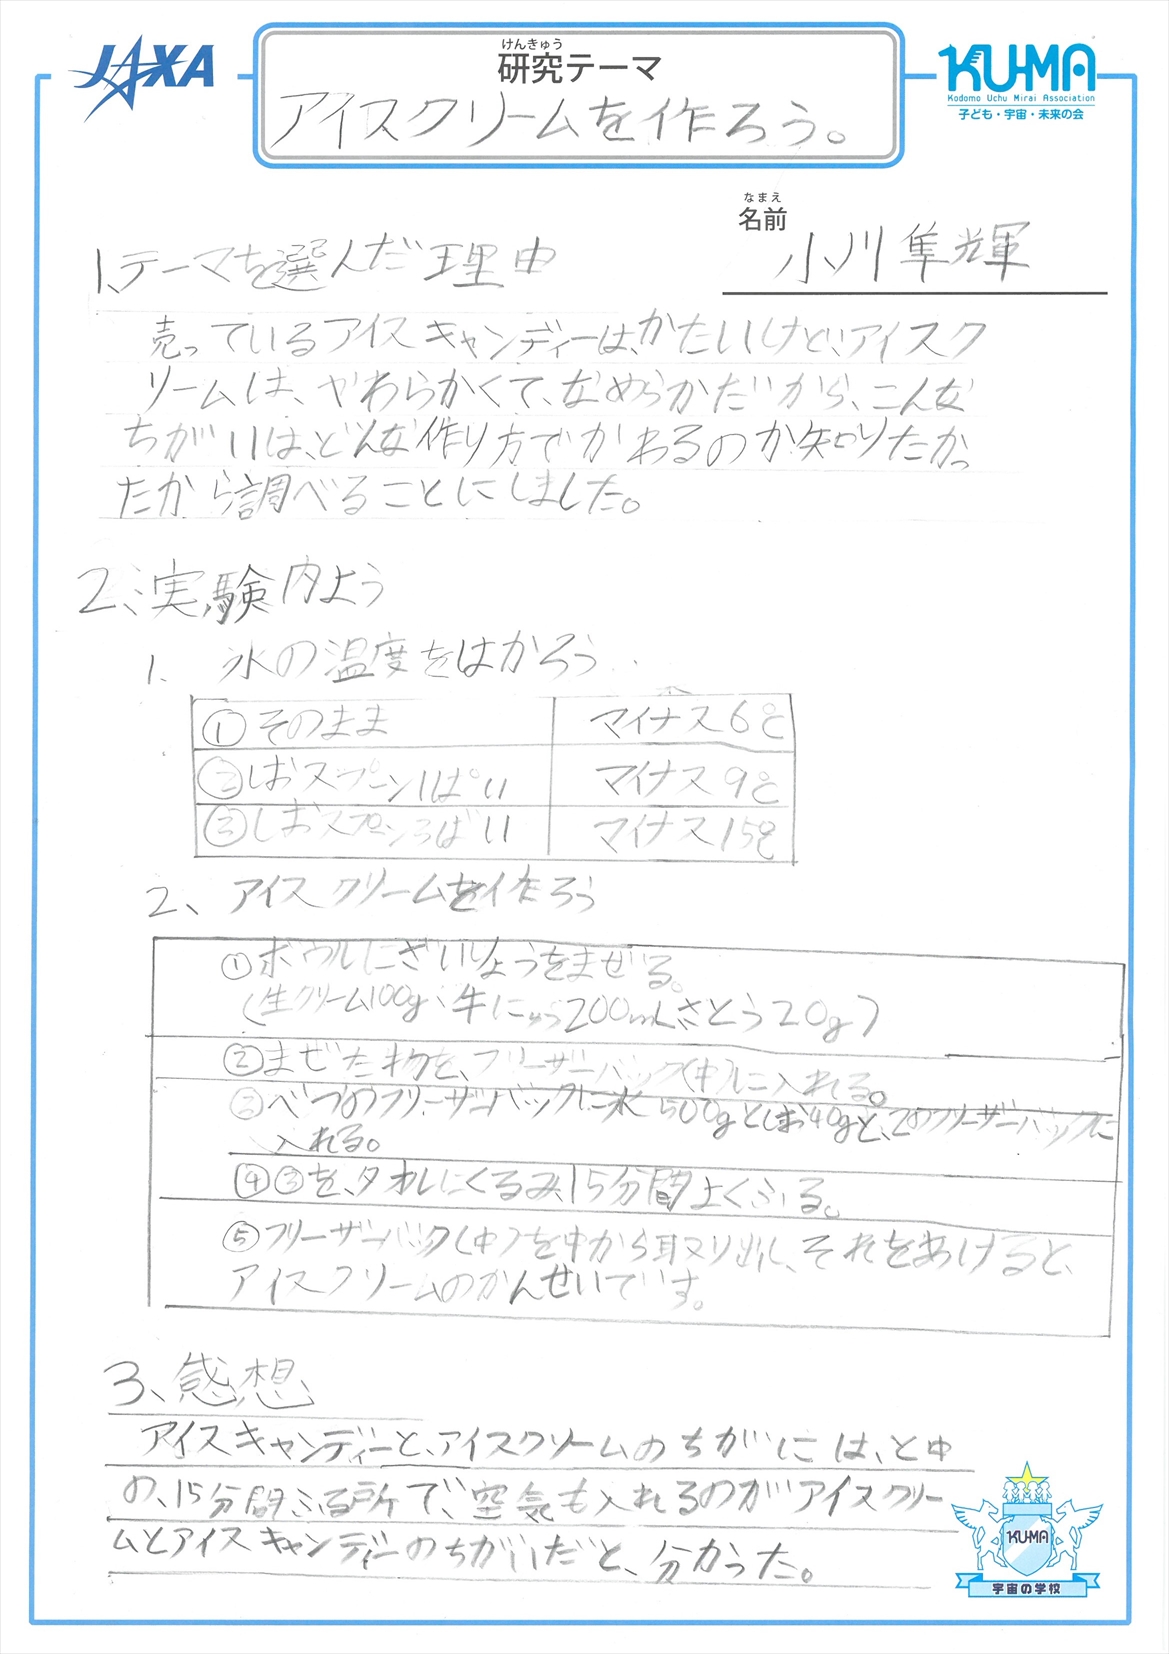 JAXA
けんきゅう
研究テーマ
アイスクリームを作ろう。
KU-MA
Kodomo Uchu Mirai Association
子ども・宇宙・未来の会
なまえ
名前
小川隼輝
1、テーマを選んだ理由
売っているアイスキャンディーは、かたいけど、アイスク
リームは、やわらかくて、なめらかだから、こんな
ちがいは、どんな作り方でかわるのか知りたかっ
たから調べることにしました。
2、実験内よう
1. 氷の温度をはかろう..
①そのまま マイナス6℃
②しおスプーン1ぱい マイナス9℃
③しおスプーン3ばい マイナス15℃
2、アイスクリームを作ろう
①ボウルにざいりょうをまぜる。
(生クリーム100g、牛にゅう200mL、さとう20g)
②まぜた物を、フリーザーバック(中)に入れる。
③べつのフリーザーバックに氷500gとしお40gと、②のフリーザーバックに
入れる。
④③を、タオルにくるみ、15分間よくふる。
⑤フリーザーバック(中)を中から取り出し、それをあけると、
アイスクリームのかんせいです。
3、感想
アイスキャンディーと、アイスクリームのちがいには、と中
の、15分間ふる所で、空気も入れるのがアイスクリー
ムとアイスキャンディーのちがいだと、分かった。
KU-MA
宇宙の学校